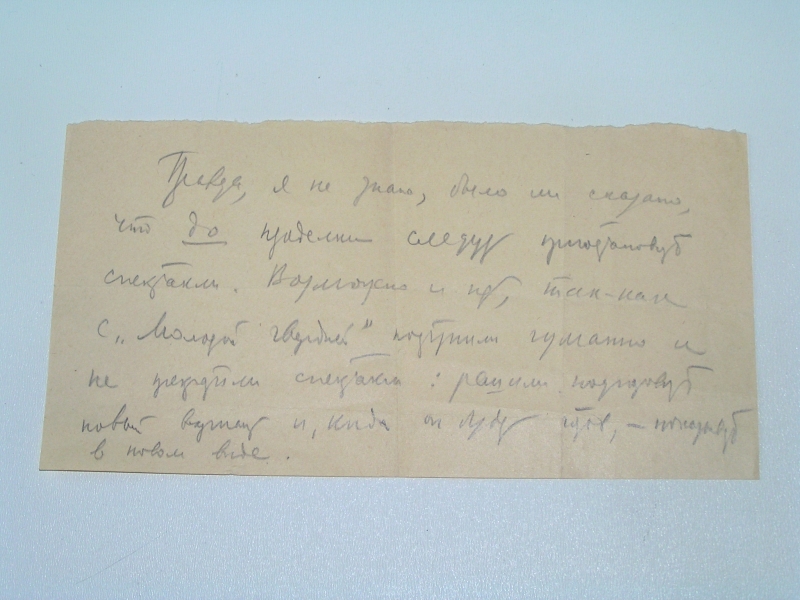 Правда, я не знаю, было ли сказано,
что до переделки следует приостановить
спектакли. Возможно и нет, так-как
с „Молодой гвардией" поступили гуманно и
не прекратили спектакли: решили подготовить
новый вариант и, когда он будет готов, — показывать
в новом виде.